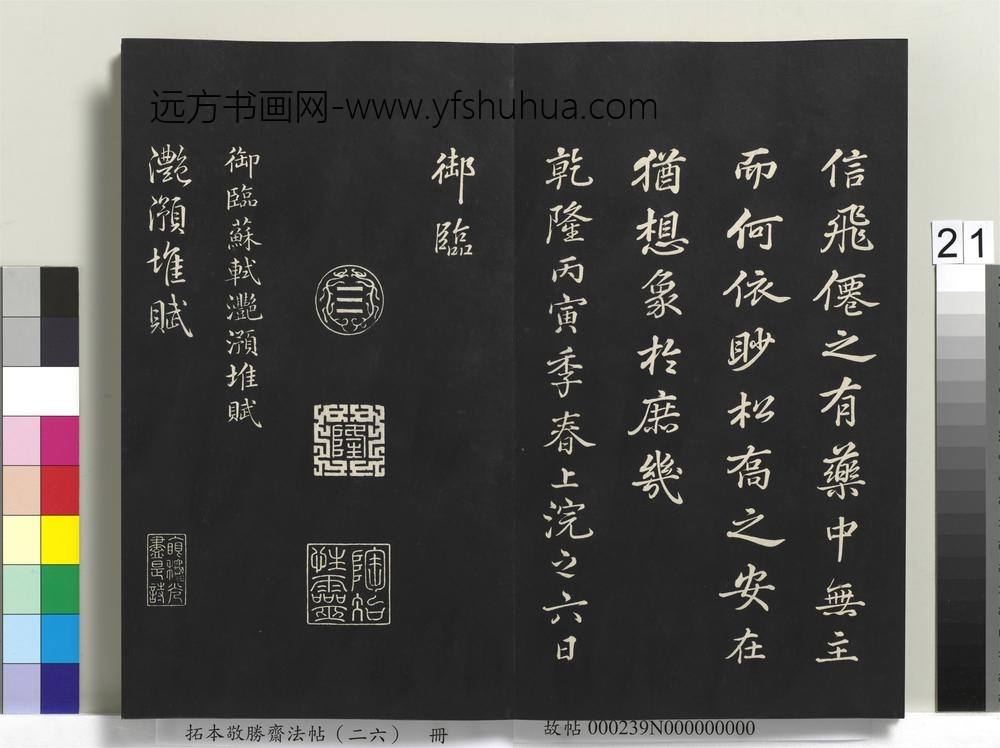 远方书画网-www.yfshuhua.com
信飛僊之有藥中無主
而何依眇松高之安在
猶想象於庶幾
乾隆丙寅季春上浣之六日
御臨
三
隆
陶冶性靈
御臨蘇軾灧澦堆賦
灧澦堆賦
21
拓本敬勝齋法帖（二六） 冊
故帖 000239N000000000